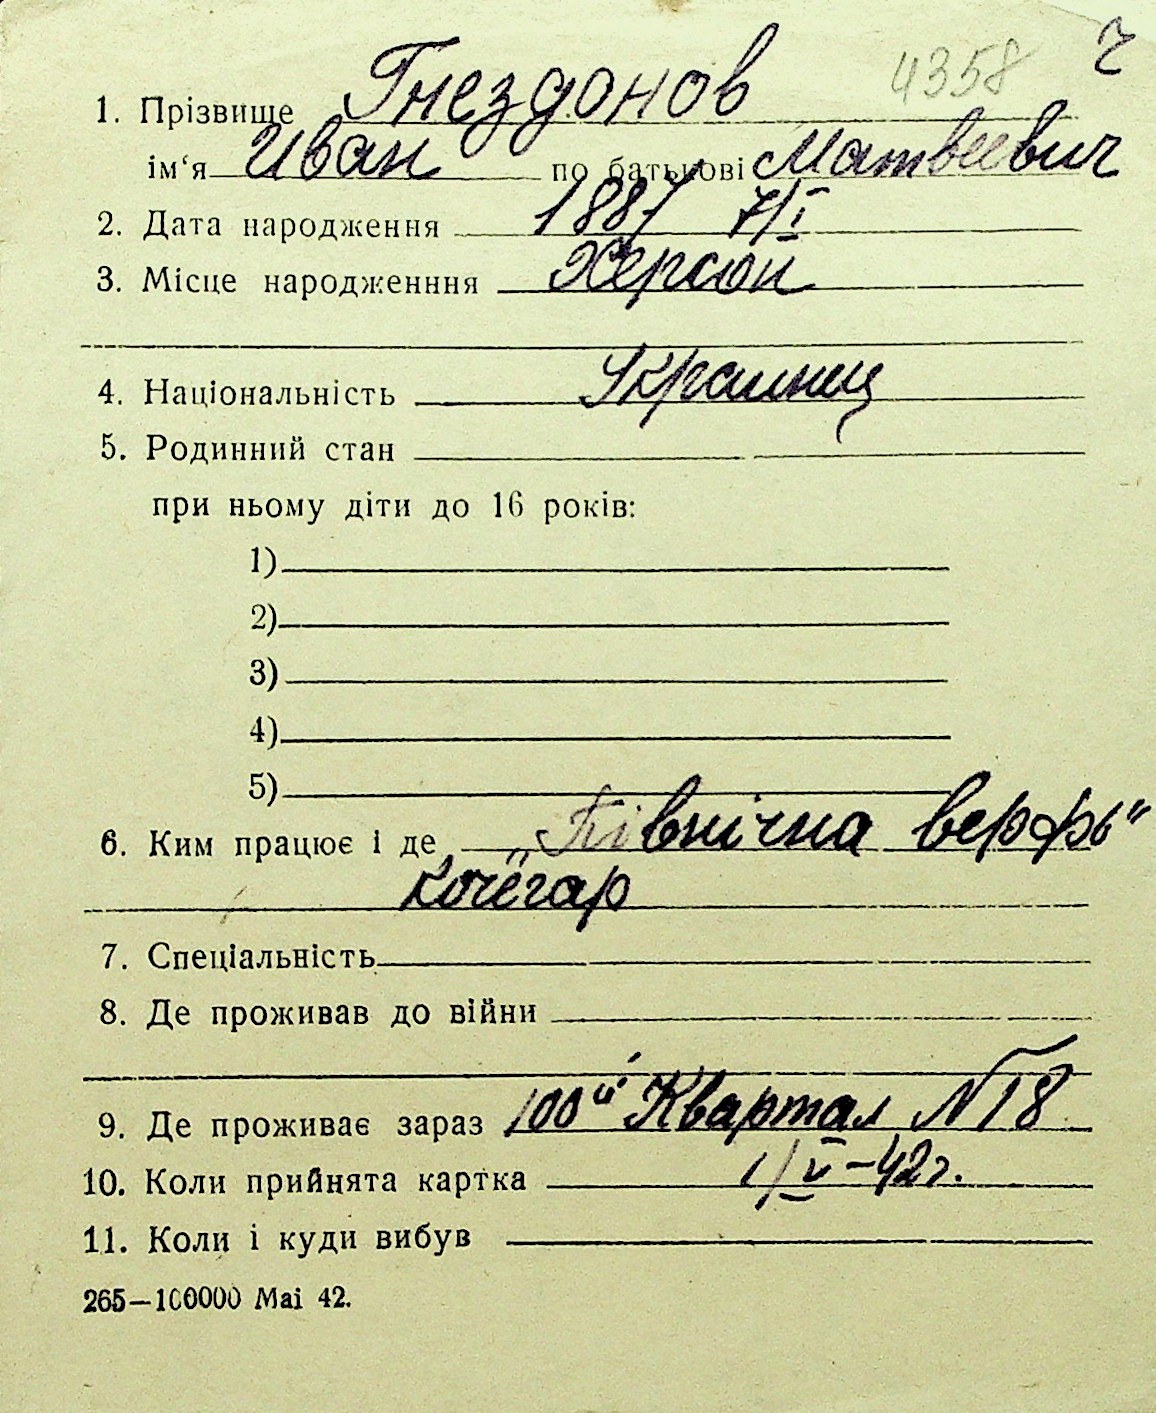 4358 ч
1. Прізвище Гнездонов
ім‘я Иван по батькові Матвеевич
2. Дата народження 1887 7/I
3. Місце народженння Херсон
4. Національність Украинец
5. Родинний стан
при ньому діти до 16 років:
1)
2)
3)
4)
5)
6. Ким працює і де „Північна верфь“
кочегар
7. Спеціальність
8. Де проживав до війни
9. Де проживає зараз 100й Квартал N 18
10. Коли прийнята картка 1/V–42г.
11. Коли і куди вибув
265—100000 Mai 42.